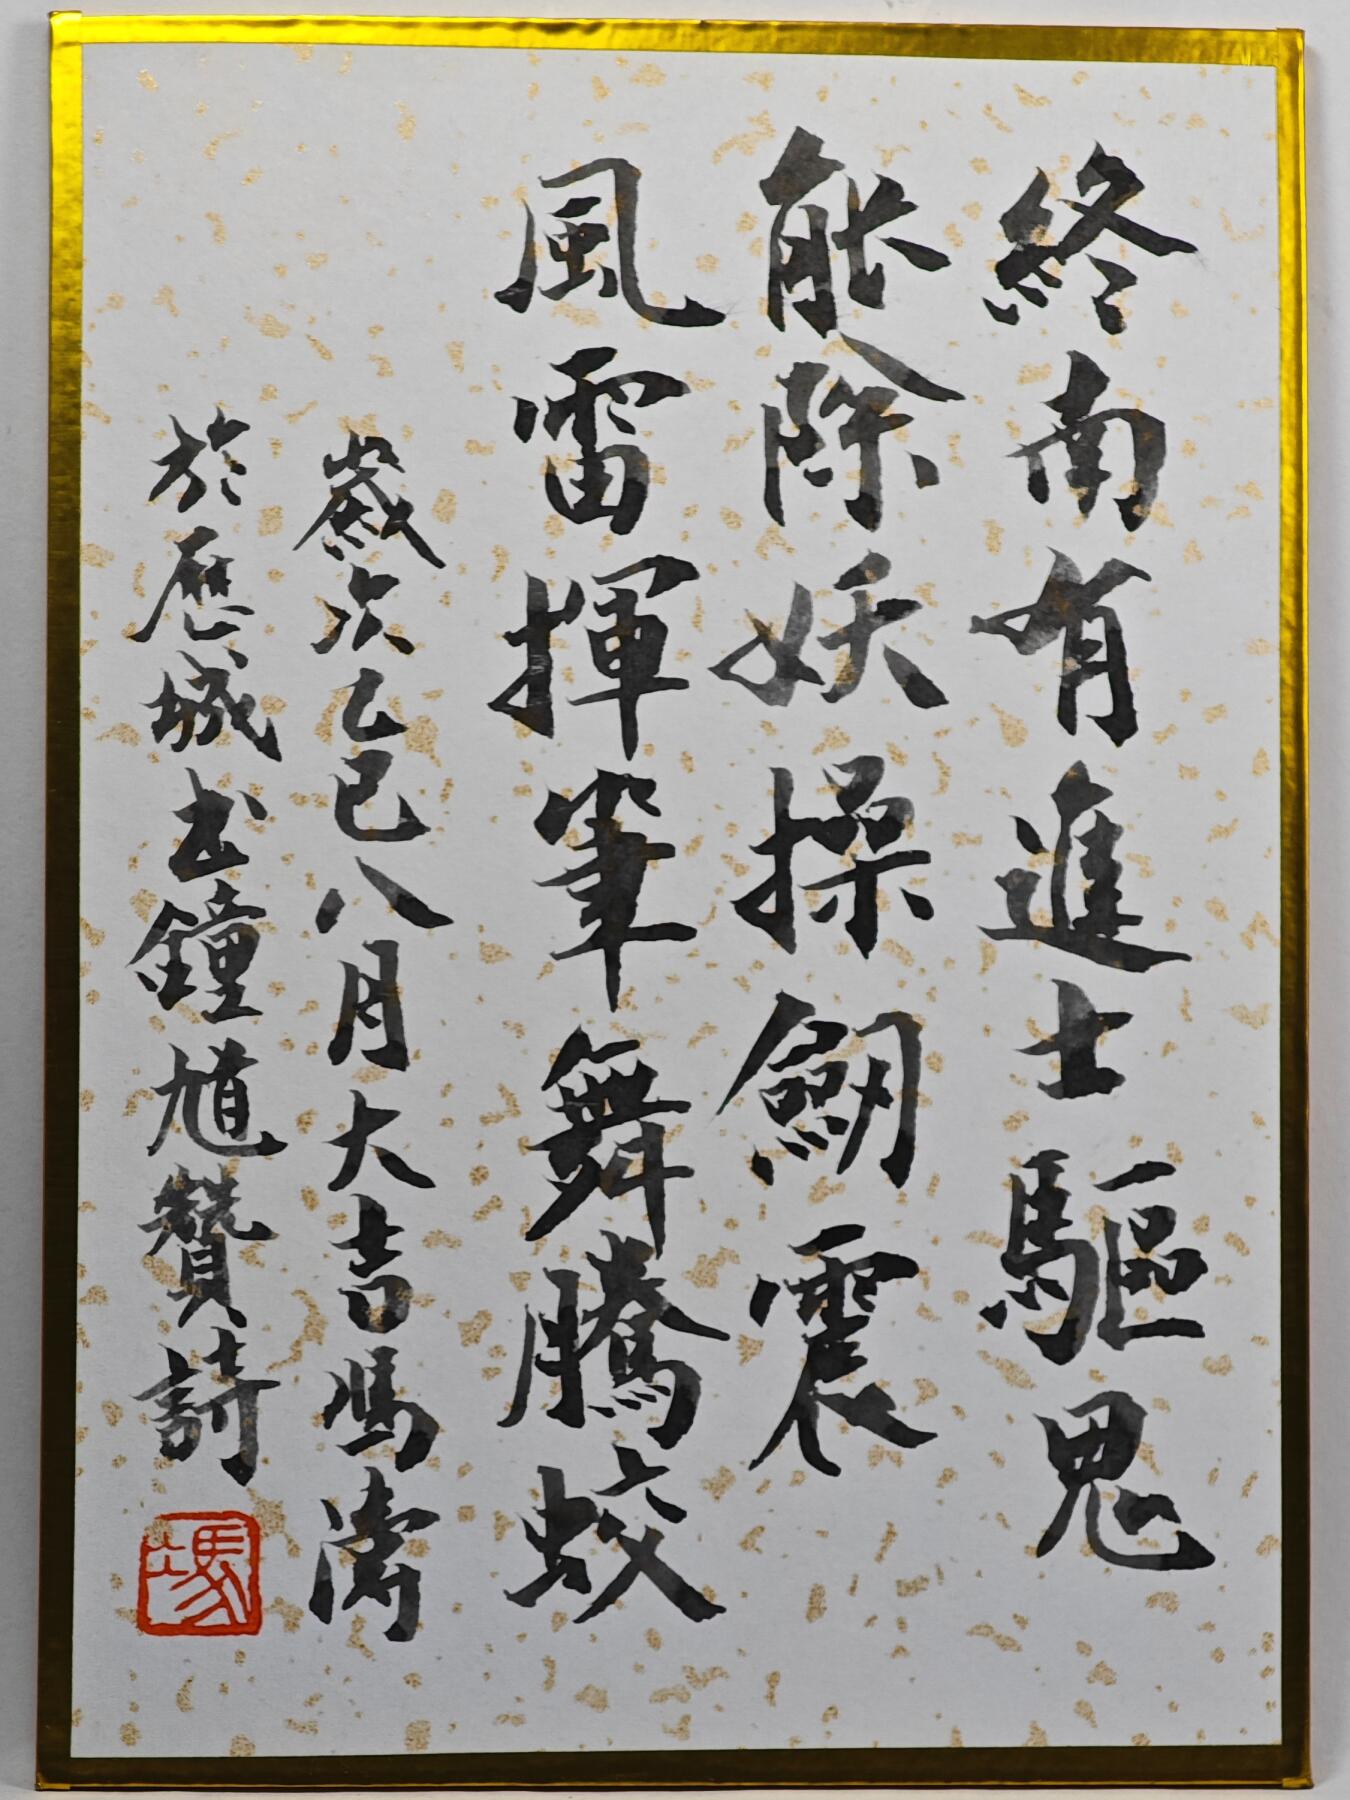 終南有進士驅鬼
能除妖操劒震
風雷揮筆舞騰蛟
歲次乙巳八月大吉馮濤
於歷城书鐘馗贊詩
馮